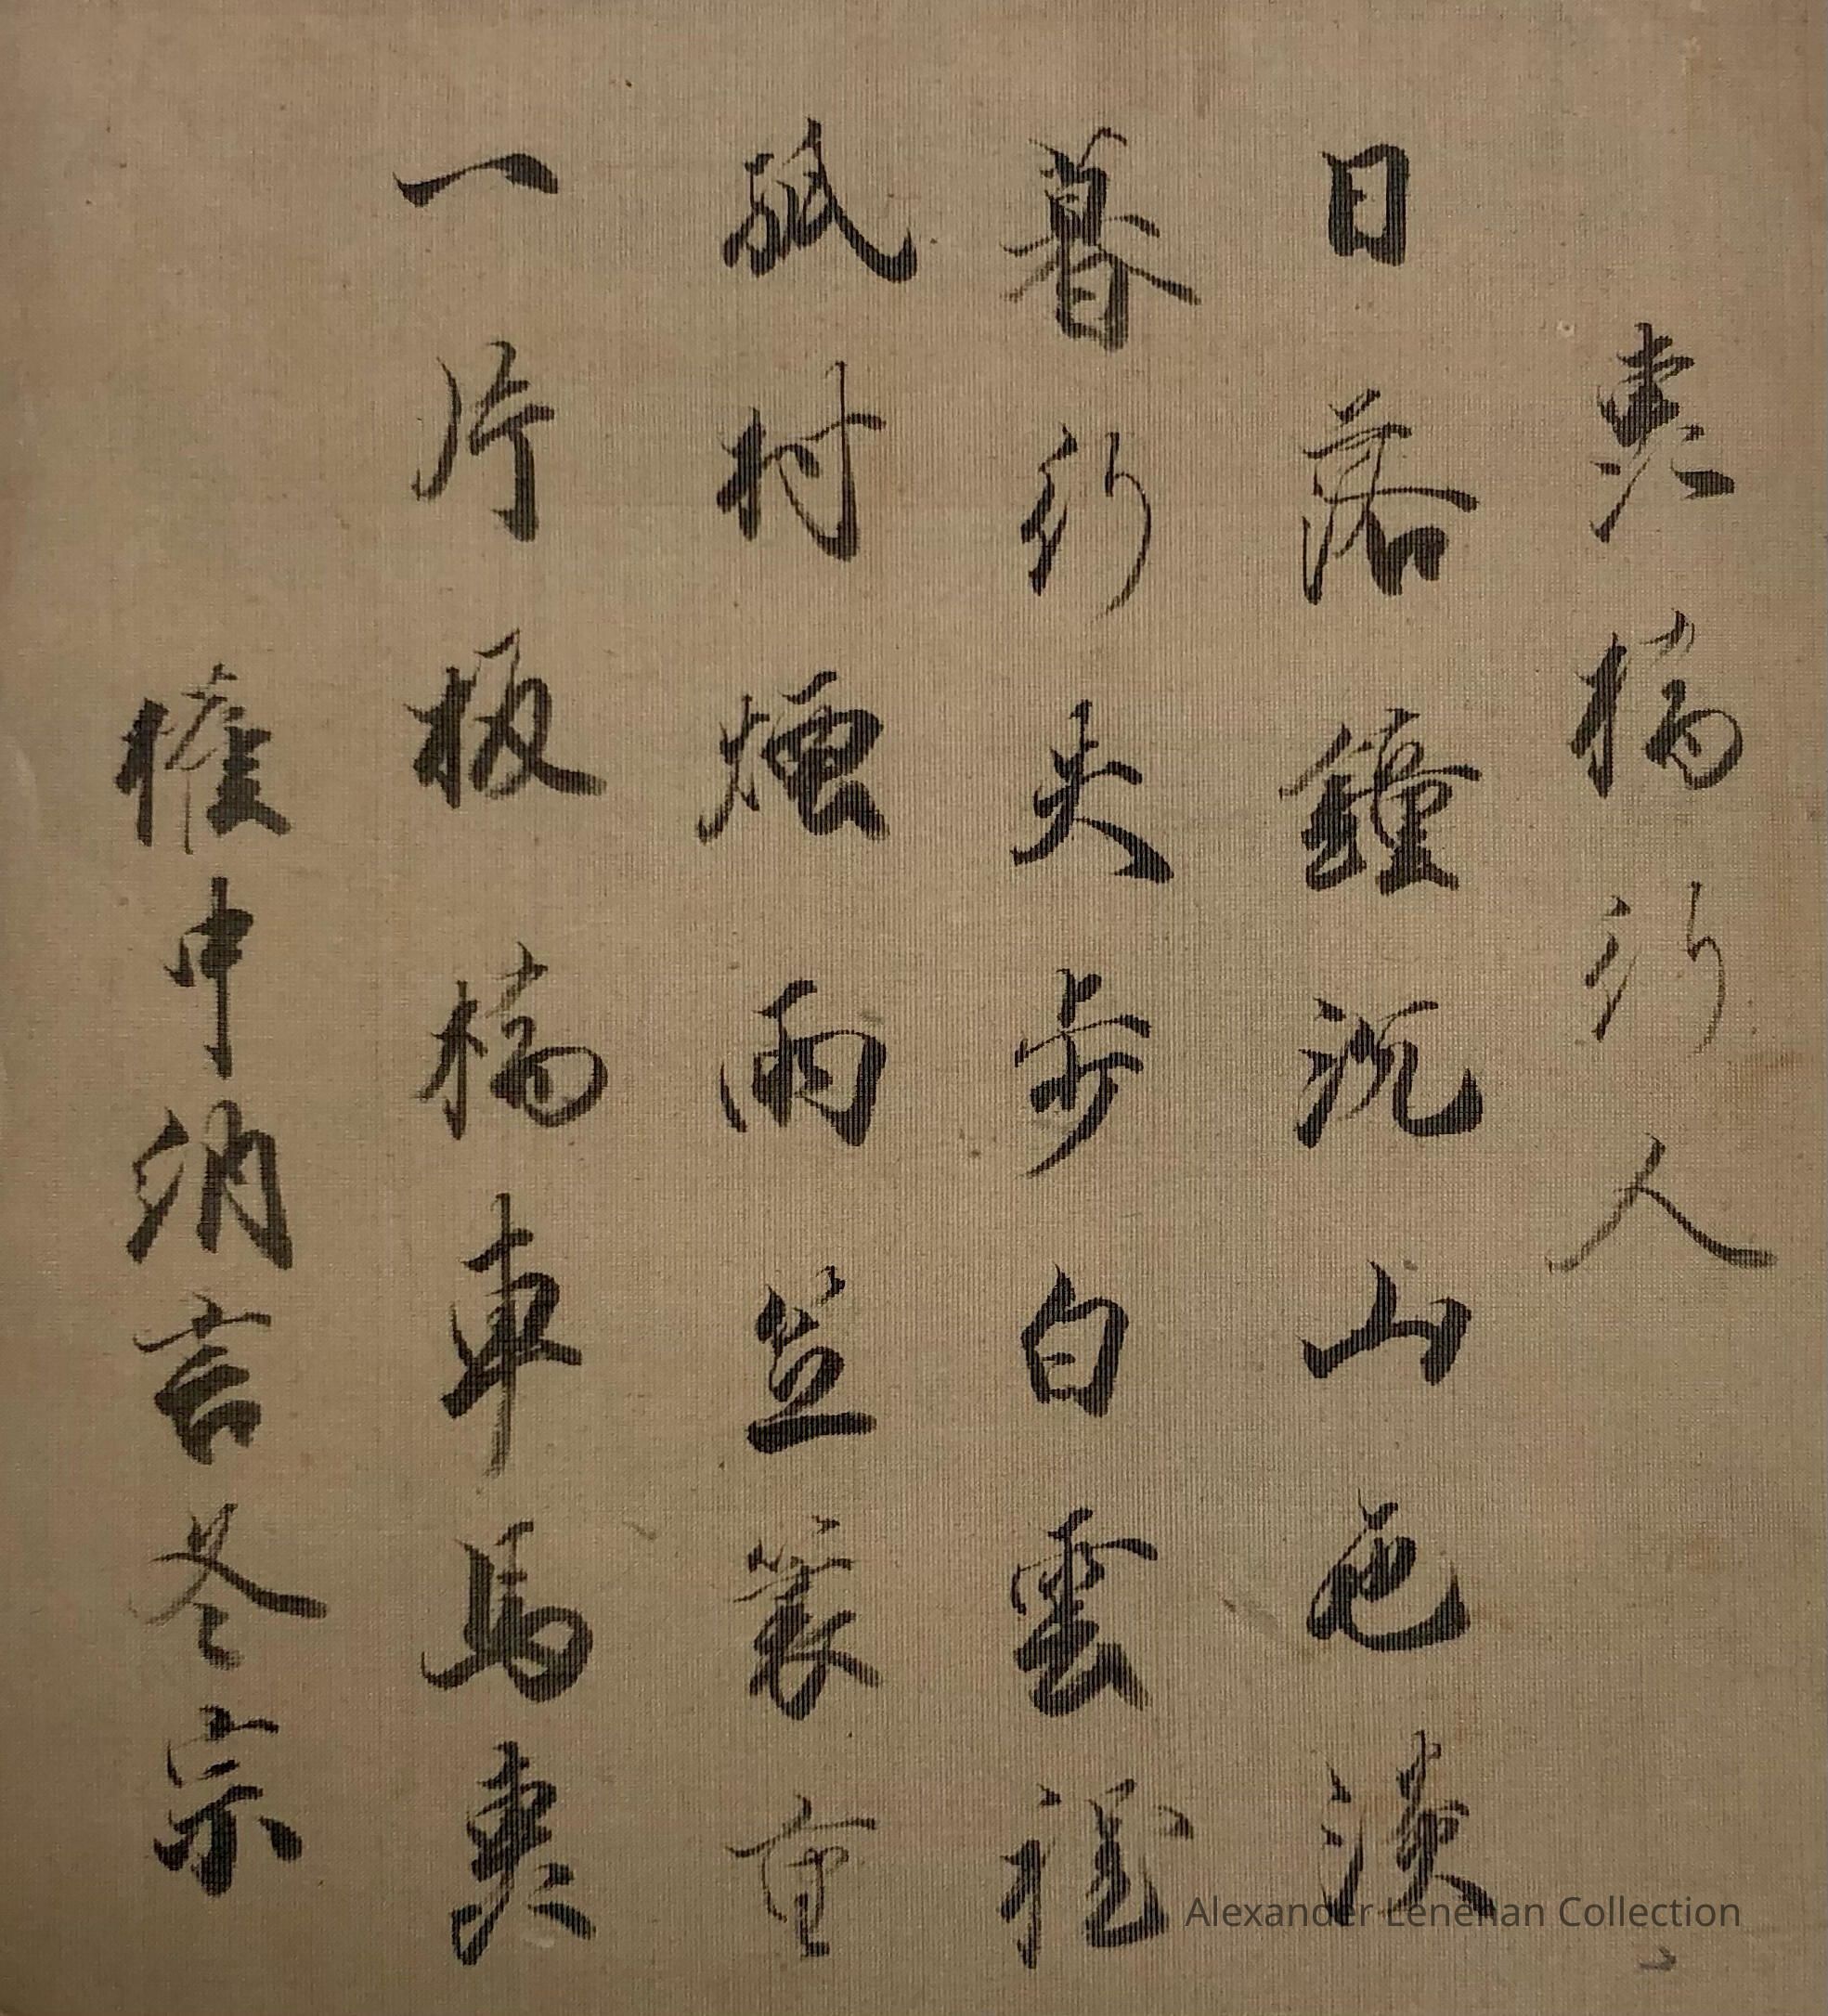 裏橋行人
日落鐘沉山色
暮行失歩白雲裡
孤村煙雨笠簑重
一片板橋車馬裏
權中納言冬宗
Alexander Lenehan Collection